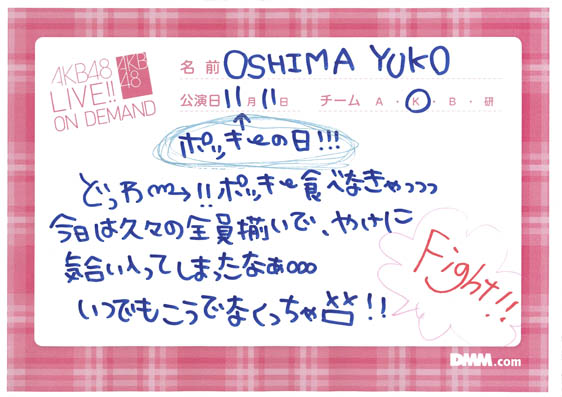 AKB48
AKB
48
LIVE!!
ON DEMAND
名前 OSHIMA YUKO
公演日 11月11日 チーム A・K・B・研
↑
ポッキーの日!!!
どっわー→!!ポッキー食べなきゃっっっ
今日は久々の全員揃いで、やけに
気合い入ってしまったなぁ。。。
いつでもこうでなくっちゃ!!
Fight!!
DMM.com